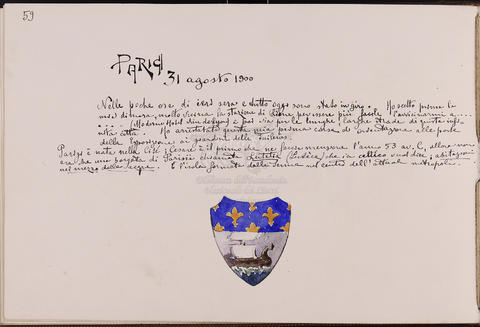 59
PARIGI
31 agosto 1900
Nelle poche ore di ieri sera e tutto oggi sono stato in giro. Ho scelto prima la
mia dimora, molto vicina la stazione di Lione per essere più facile l'avvicinarmi a....
.... (Moderno Hotel e poi via per le lunghe larghe strade di questa vasta
città. Ho arrestato quindi mia prima corsa di orientazione alle porte
della Esposizione ai giardini delle Tuileries.
Parigi è nata nella Cité; Cesare è il primo che ne fasse menzione l'anno 53 av. C, allora non
era che una borgata di Parisii chiamata Lutetia (Lutèce che in celtico vuol dire; abitazioni
nel mezzo delle acque. E l'isola formata dalla Senna nel centro dell'attuale metropoli.
Biblioteca dell'Accademia
Nazionale dei Lincei